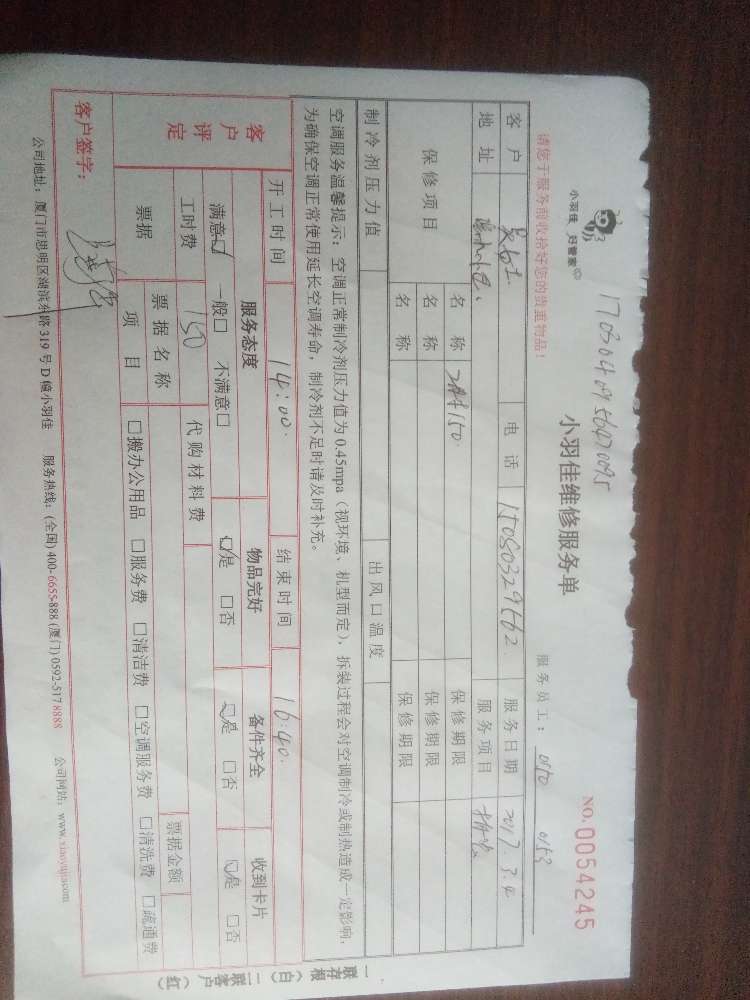 17030409564270095
小羽佳 好管家
小羽佳维修服务单
NO.0054245
请您于服务前收拾好您的贵重物品！
服务员工： 0153
客户 电话 15050329562 服务日期 2017.3.4
地址 服务项目
保修项目 名称 150. 保修期限
名称 保修期限
名称 保修期限
制冷剂压力值 出风口温度
空调服务温馨提示：空调正常制冷剂压力值为0.45mpa（视环境、机型而定），拆装过程会对空调制冷或制热造成一定影响，
为确保空调正常使用延长空调寿命，制冷剂不足时请及时补充。
开工时间 14:00. 结束时间 16:40.
客户评定 服务态度 物品完好 备件齐全 收到卡片
满意☑ 一般□ 不满意□ ☑是 □否 ☑是 □否 ☑是 □否
工时费 150 代购材料费
票据 票据名称 票据金额
项目 □搬办公用品 □服务费 □清洁费 □空调服务费 □清洗费 □疏通费
客户签字：
公司地址：厦门市思明区湖滨东路319号D幢小羽佳 服务热线：(全国) 400-6655-888 (厦门) 0592-5178888 公司网站：www.xiaoyujia.com
一联存根（白）二联客户（红）